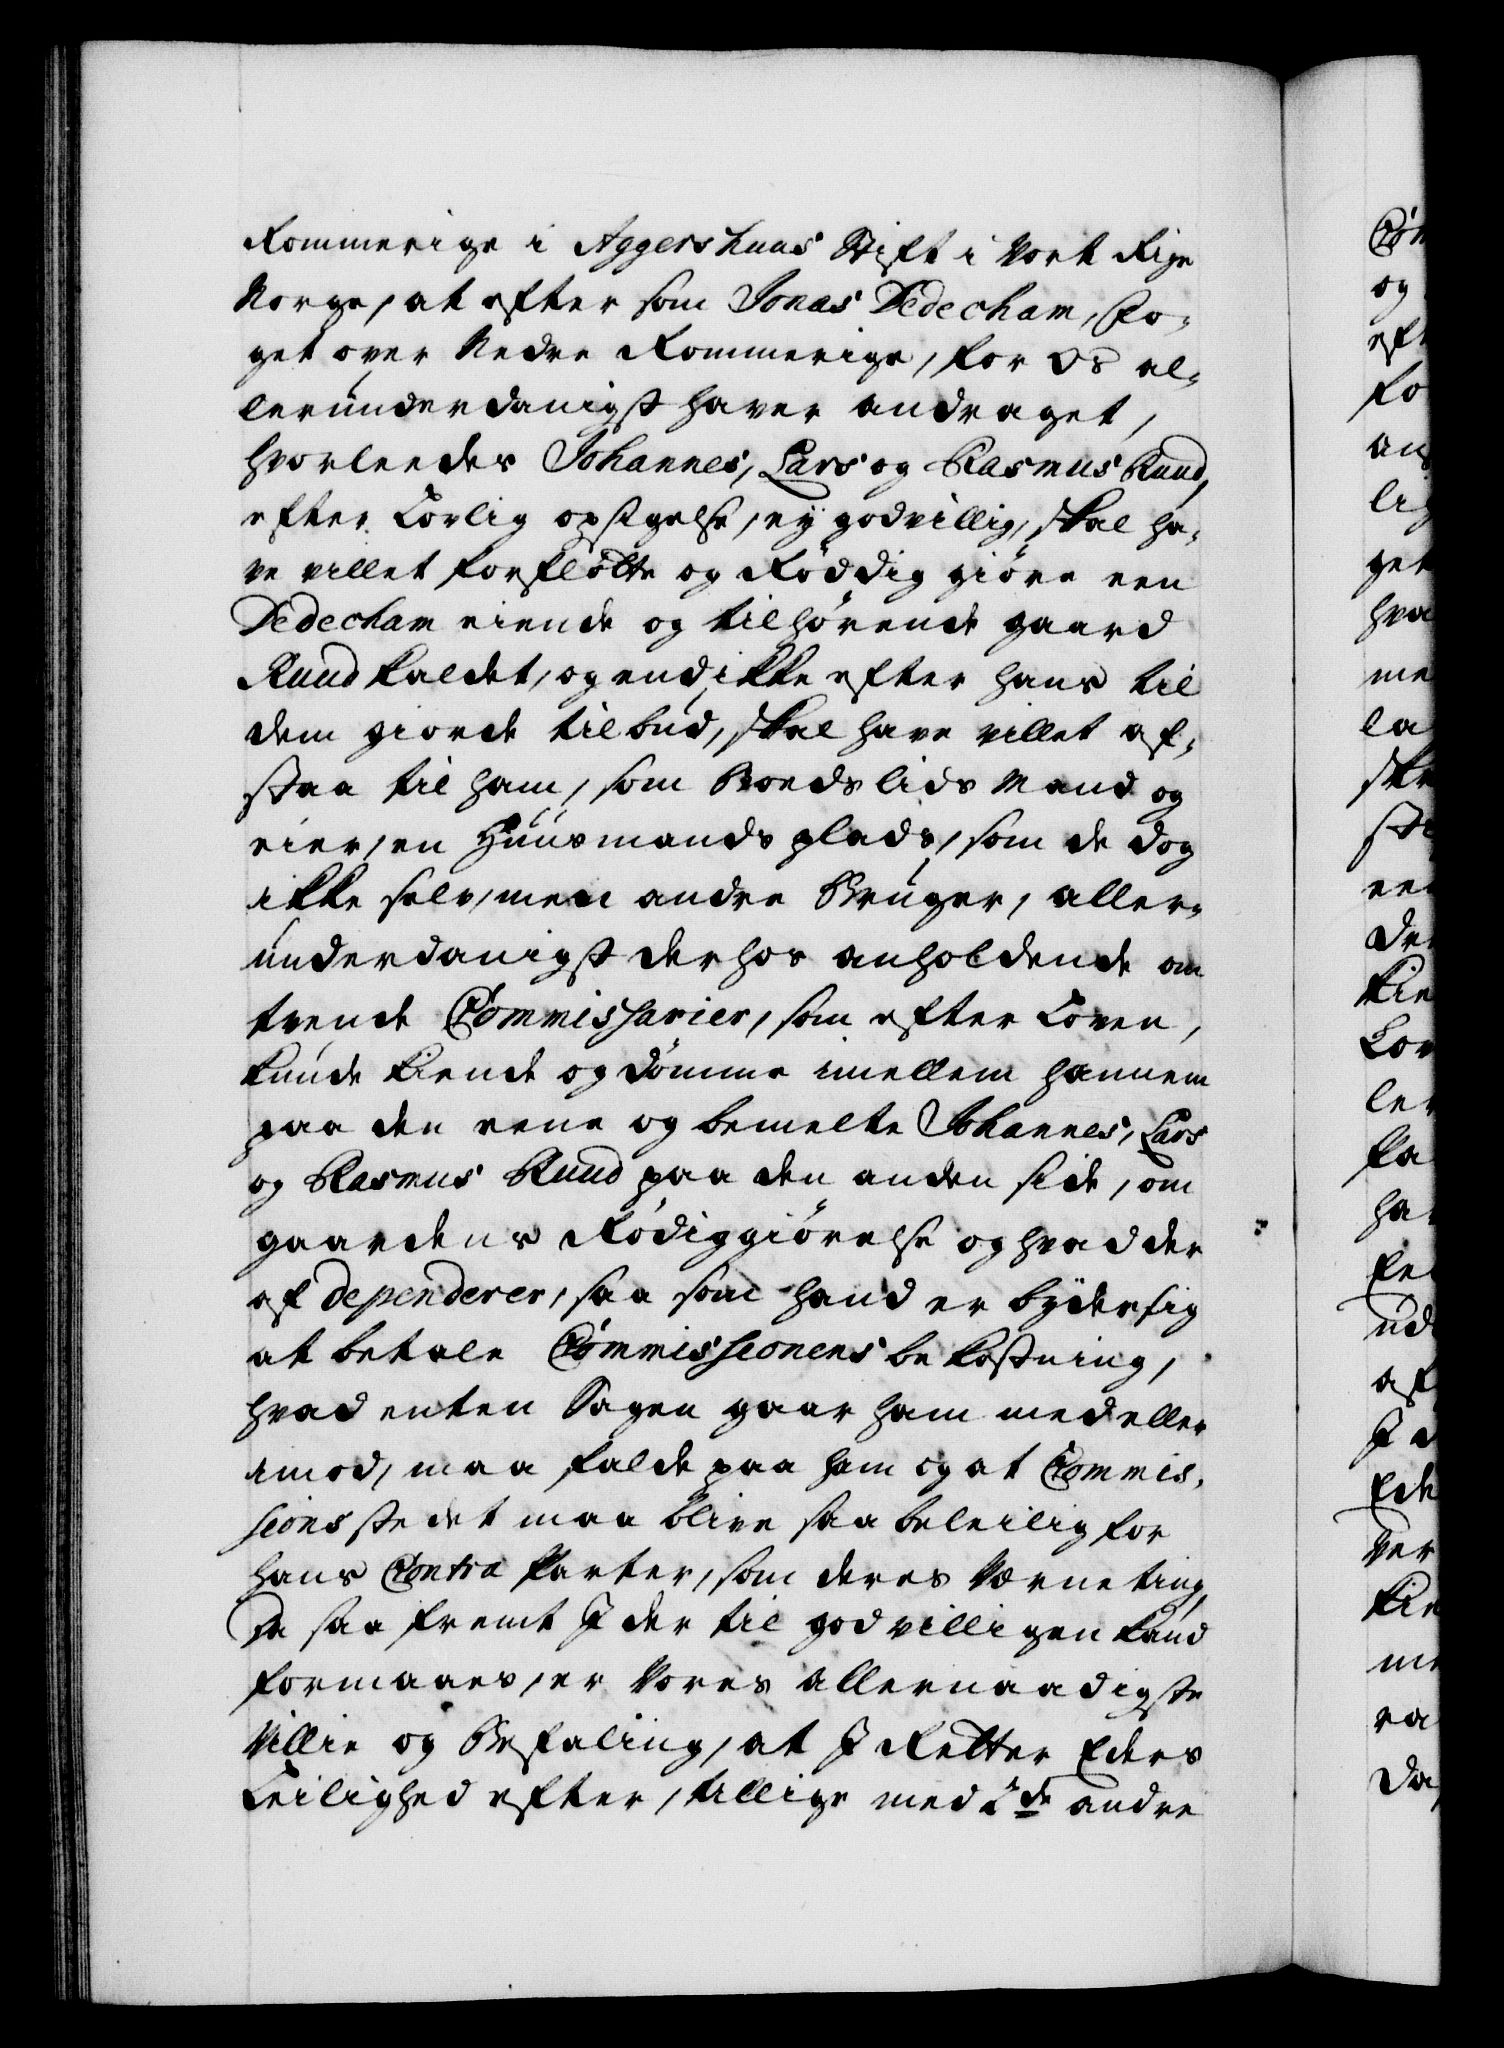 Rommerige i Aggershuus Stift i Vort Rige
Norge, at efter som Jonas Dedecham, Fo-
get over Nedre Rommerige, for Os al-
lerunderdanigst haver andraget,
hvorleedes Johannes, Lars og Rasmus Ruud,
efter Lovlig opsigelse, ey godvillig, skal ha-
ve villet forflötte og Röddig giöre een
Dedecham eiende og tilhörende gaard
Ruud kaldet, og end ikke efter hans til
dem giorde tilbud, skal have villet af-
staa til ham, som Boeds lids Mand og
eier, en Huusmands plads, som de dog
ikke selv, men andre Bruger, aller-
underdanigst derhos anholdende om
trende Commissarier, som efter Loven,
kunde kiende og dömme imellem hannem
paa den eene og bemelte Johannes, Lars
og Rasmus Ruud paa den anden side, om
gaardens Rödiggiörelse og hvad der
af dependerer, saa som hand er byder sig
at betale Commissionens bekostning,
hvad enten Sagen gaar ham med eller
imod, maa falde paa ham og at Commis-
sions stedet maa blive saa beleilig for
hans Contra Parter, som deres Værneting,
Da saa fremt I der til godvilligen kand
formaaes, er Vores allernaadigste
Villie og Befaling, at I Retter Eders
Leilighed efter, tillige med 2de andre